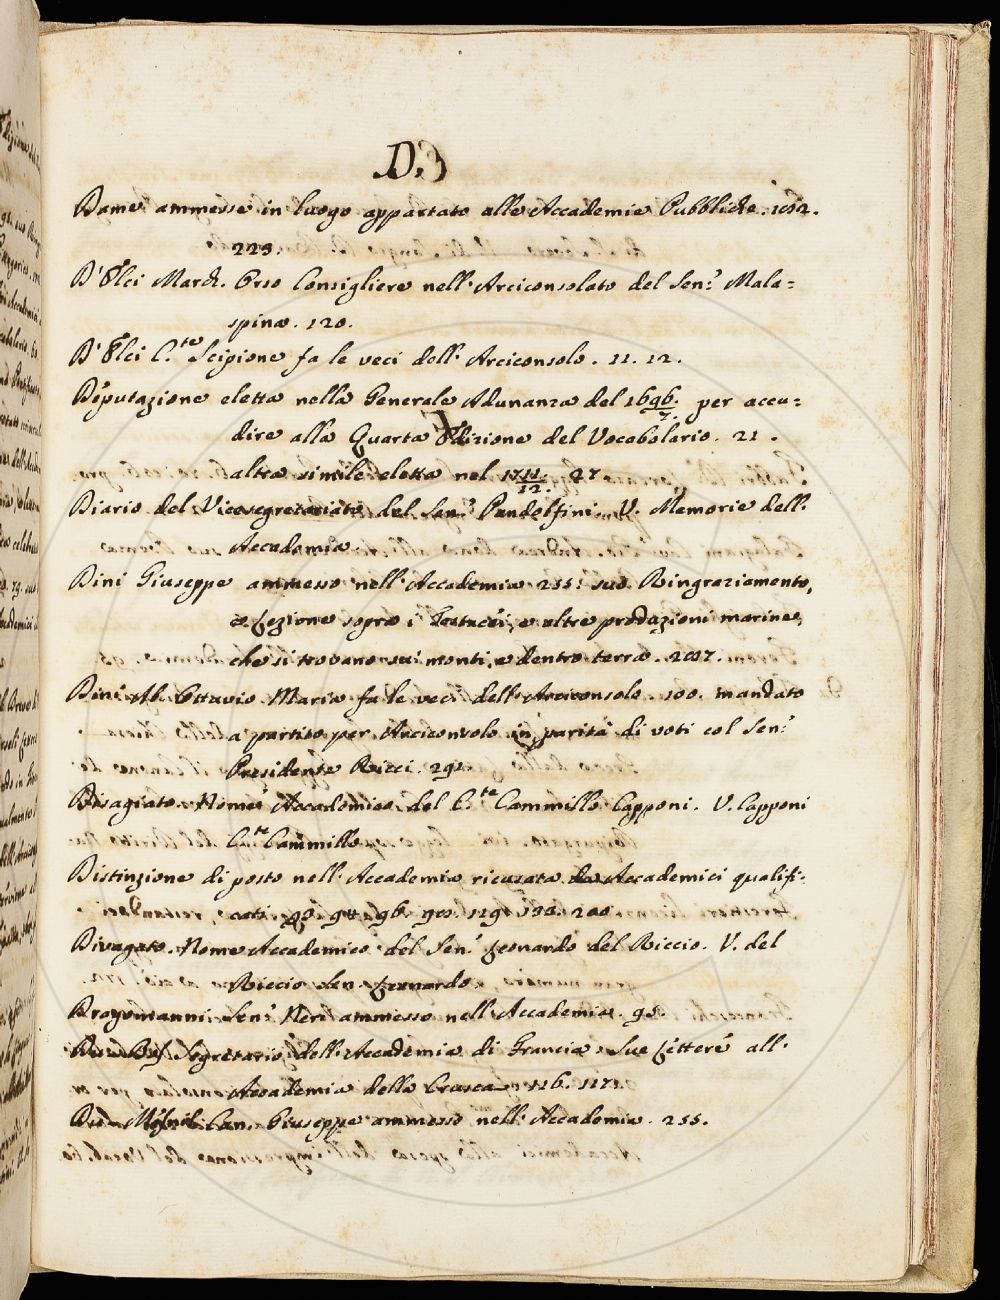 D.
Dame ammesse in luogo appartato alle Accademie Pubbliche. 102.
223.
D'Elci March. Orso Consigliere nell'Arciconsolato del Sen.r Mala=
spina. 120.
D'Elci C.te Scipione fa le veci dell'Arciconsolo. 11. 12.
Deputazione eletta nella Generale Adunanza del 1696/7. per accu=
dire alla Quarta Edizione del Vocabolario. 21.
altra simile eletta nel 1711/12. 27
Diario del Vicesegretariato del Sen.r Pandolfini V. Memorie dell'
Accademia
Dini Giuseppe ammesso nell'Accademia 255: suo Ringraziamento,
e Lezione sopra i Testacei, e altre produzioni marine,
che si trovano sui monti, e dentro terra. 257.
Dini Ab. Ottavio Maria fa le veci dell'Arciconsolo. 100. mandato
a partito per Arciconsolo in parità di voti col Sen.r
Presidente Ricci. 292
Disagiato. Nome Accademico del C.te Cammillo Capponi. V. Capponi
C.te Cammillo
Distinzione di posto nell'Accademia ricusata da Accademici qualifi=
cati. 90. 94. 96. 129.
Divagato. Nome Accademico del Sen.r Leonardo del Riccio. V. del
Riccio Sen. Leonardo
Dragomanni Sen.r Neri ammesso nell'Accademia. 95.
Segretario dell'Accademia di Francia. Sue Lettere all'
Accademia della Crusca 116. 117.
Can. Giuseppe ammesso nell'Accademia. 255.